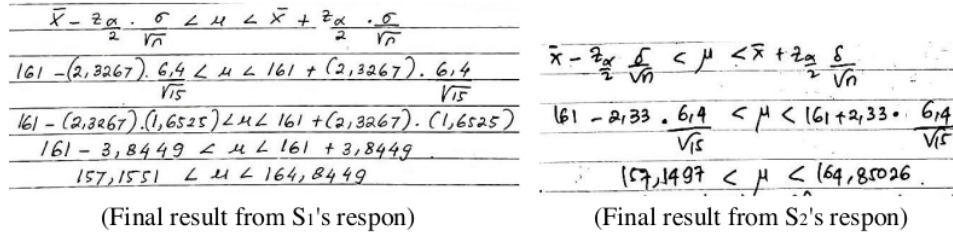 x̄ - zα/2 . σ/√n < μ < x̄ + zα/2 . σ/√n
161 - (2,3267) . 6,4/√15 < μ < 161 + (2,3267) . 6,4/√15
161 - (2,3267).(1,6525) < μ < 161 + (2,3267).(1,6525)
161 - 3,8449 < μ < 161 + 3,8449
157,1551 < μ < 164,8449
(Final result from S1's respon)
x̄ - zα/2 δ/√n < μ < x̄ + zα/2 δ/√n
161 - 2,33 . 6,4/√15 < μ < 161 + 2,33 . 6,4/√15
157,1497 < μ < 164,85026.
(Final result from S2's respon)